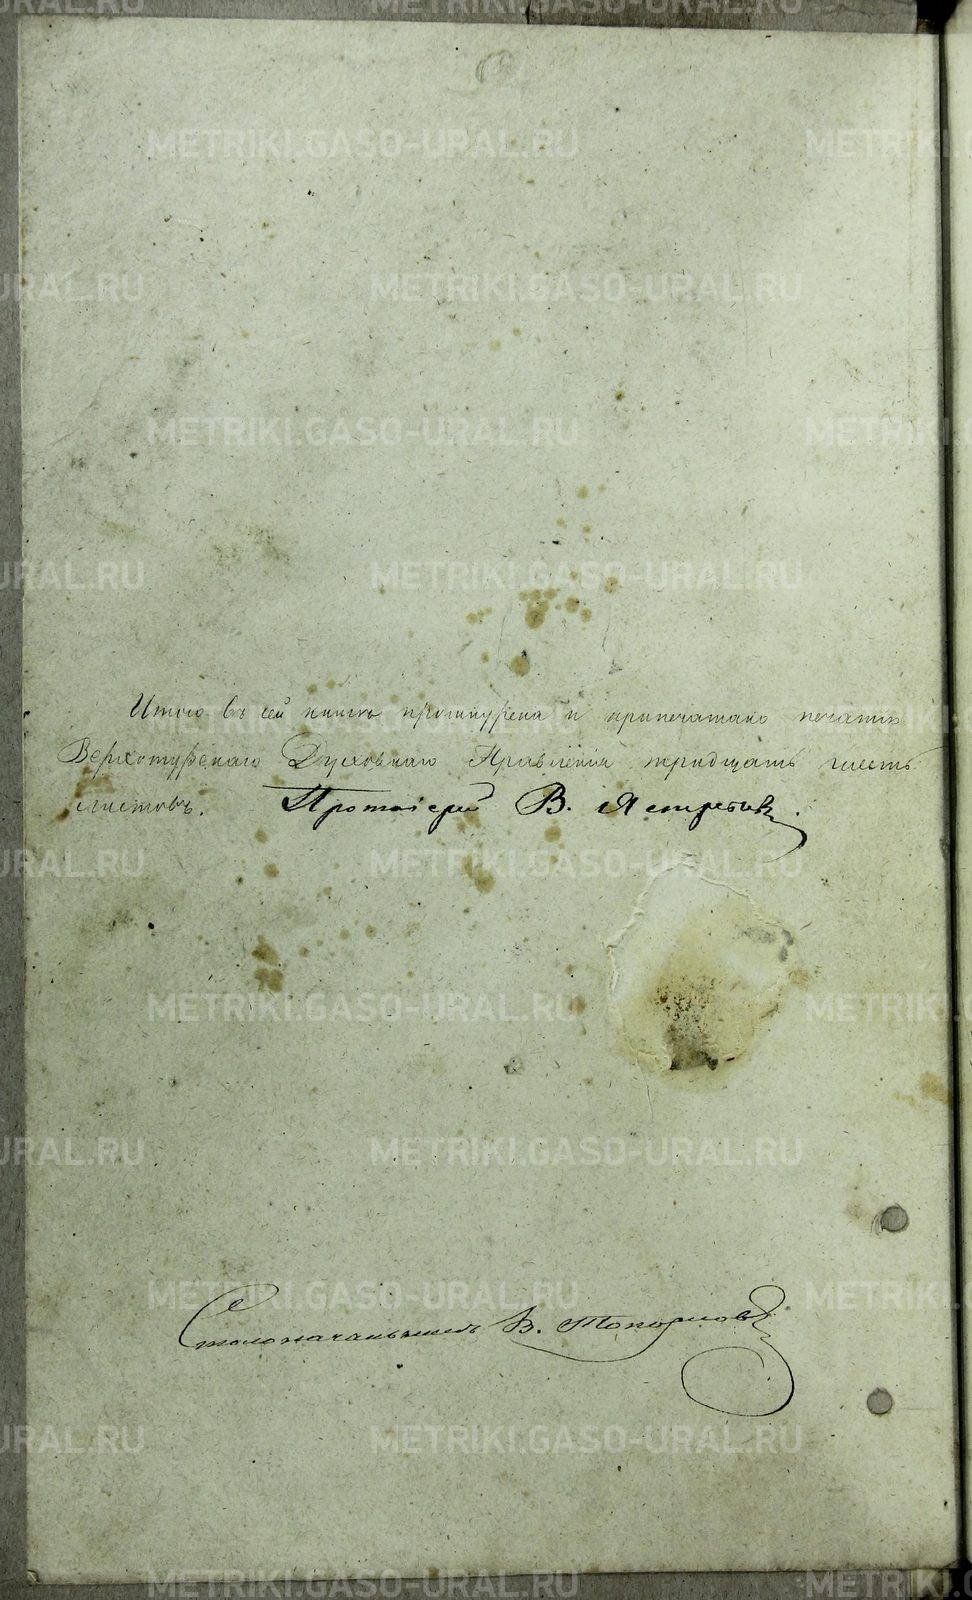 Итого въ сей книгѣ прошнурена и припечатано печатью
Верхотурскаго Духовнаго Правленія тридцать шесть
листовъ. Протоіерей В. Ястребовъ.
Столоначальникъ В. Топорковъ
METRIKI.GASO-URAL.RU